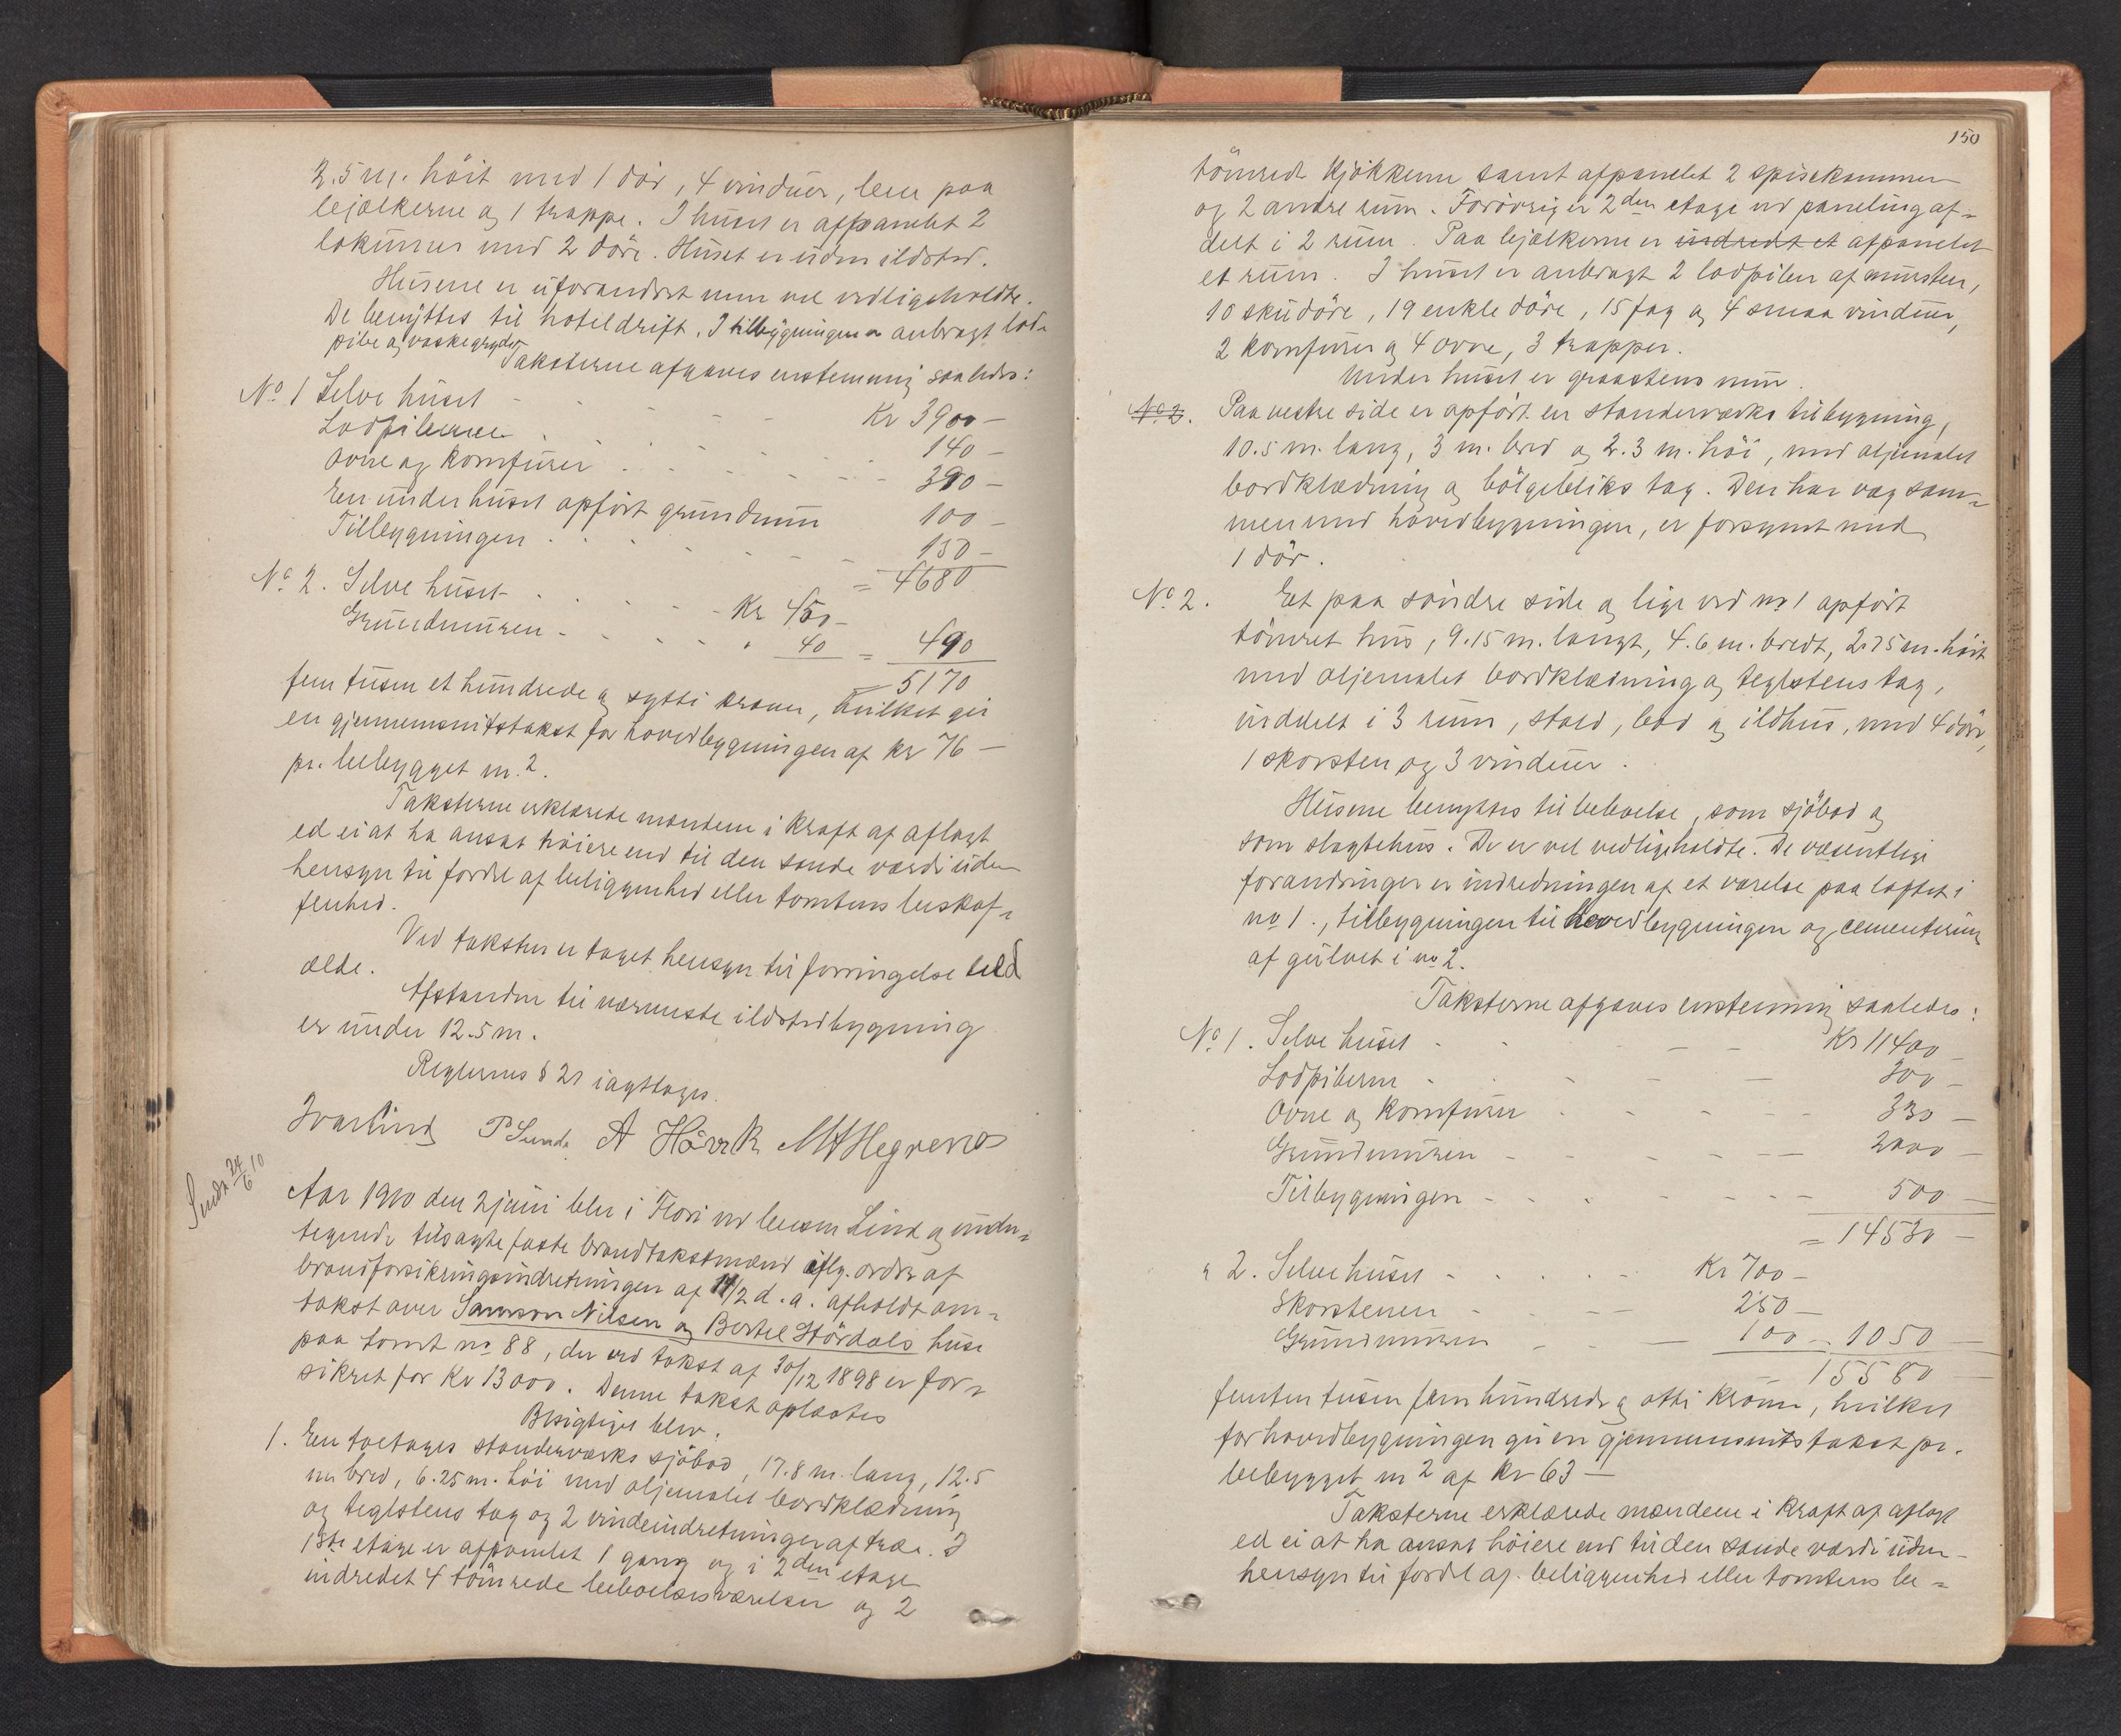 2.5 m. höit med 1 dör, 4 vinduer, lem paa
bjælkerne og 1 trappe. I huset er afpanelet 2
lokummer med 2 döre. Huset er uden ildsted.
Husene er uforandret men vel vedligeholdte.
De benyttes til hoteldrift. I tilbygningen er anbragt lod-
pibe og vaskegryde
Taksterne afgaves enstemmig saaledes:
No 1 Selve huset - Kr 3900 -
Lodpiberne 140 -
Ovne og komfurer 390 -
En under huset opfört grundmur 100 -
Tilbygningen 150 -
= 4680
No 2. Selve huset - Kr 450 -
Grundmuren - " 40 = 490
= 5170
fem tusen et hundrede og sytti kroner, hvilket gir
en gjennemsnitstakst for hovedbygningen af kr 76 -
pr. bebygget m.2.
Taksterne erklærede mændene i kraft af aflagt
ed ei at ha ansat höiere end til den sande værdi uden
hensyn til fordel af beliggenhed eller tomtens beskaf-
fenhed.
Ved taksten er taget hensyn til forringelse ved
ælde.
Afstanden til nærmeste ildstedbygning
er under 12.5 m.
Reglernes § 21 iagttages.
Ivar Lind P Sunde A Hövik MA Hegrenæs
Sendt 24/6 10
Aar 1910 den 2 juni blev i Florö ved lensm Lind og under-
tegnede tilsagte faste brandtakstmænd iflg. ordre af
brandforsikringsindretningen af 11/2 d. a. afholdt om-
takst over Samson Nilsen og Bertel Stördals huse
paa tomt no 88, der ved takst af 30/12 1898 er for-
sikret for Kr 13000. Denne takst oplæstes
Besigtiget blev.
1. En toetages standerværks sjöbod, 17.8 m. lang, 12.5
m bred, 6.25 m. höi med oljemalet bordklædning
og teglstens tag og 2 vindeindretninger af træ. I
1ste etage er afpanelet 1 gang og i 2den etage
indredet 4 tömrede beboelsesværelser og 2
150
tömrede kjökkener samt afpanelet 2 spisekammer
og 2 andre rum. Forövrig er 2den etage ved paneling af-
delt i 2 rum. Paa bjælkerne er indredt et afpanelet
et rum. I huset er anbragt 2 lodpiber af mursten,
10 skudöre, 19 enkle döre, 15 fag og 4 smaa vinduer,
2 komfurer og 4 ovne, 3 trapper.
Under huset er graastens mur.
No 2. Paa vestre side er opfört en standerværks tilbygning,
10.5 m. lang, 3 m. bred og 2.3 m. höi, med oljemalet
bordklædning og bölgebliks tag. Den har væg sam-
men med hovedbygningen, er forsynet med
1 dör.
No 2. Et paa söndre side og lige ved no 1 opfört
tömret hus, 9.15 m. langt, 4.6 m. bredt, 2.75 m. höit
med oljemalet bordklædning og teglstens tag,
inddelt i 3 rum, stald, bod og ildhus, med 4 döre,
1 skorsten og 3 vinduer.
Husene benyttes til beboelse, som sjöbod og
som slagtehus. De er vel vedligeholdte. De væsentlige
forandringer er indredningen af et værelse paa loftet i
no 1., tilbygningen til hovedbygningen og cementering
af gulvet i no 2.
Taksterne afgaves enstemmig saaledes:
No 1. Selve huset - Kr 11400 -
Lodpiberne - 300 -
Ovne og komfurer 330 -
Grundmuren - 2000 -
Tilbygningen - 500 -
= 14530 -
" 2. Selve huset - Kr 700 -
Skorstenen - 250 -
Grundmuren - 100 - 1050 -
15580 -
femten tusen fem hundrede og otti kroner, hvilket
for hovedbygningen gir en gjennemsnitstakst pr.
bebygget m 2 af kr 63 -
Taksterne erklærede mændene i kraft af aflagt
ed ei at ha ansat höiere end til den sande værdi uden
hensyn til fordel af beliggenhed eller tomtens be-